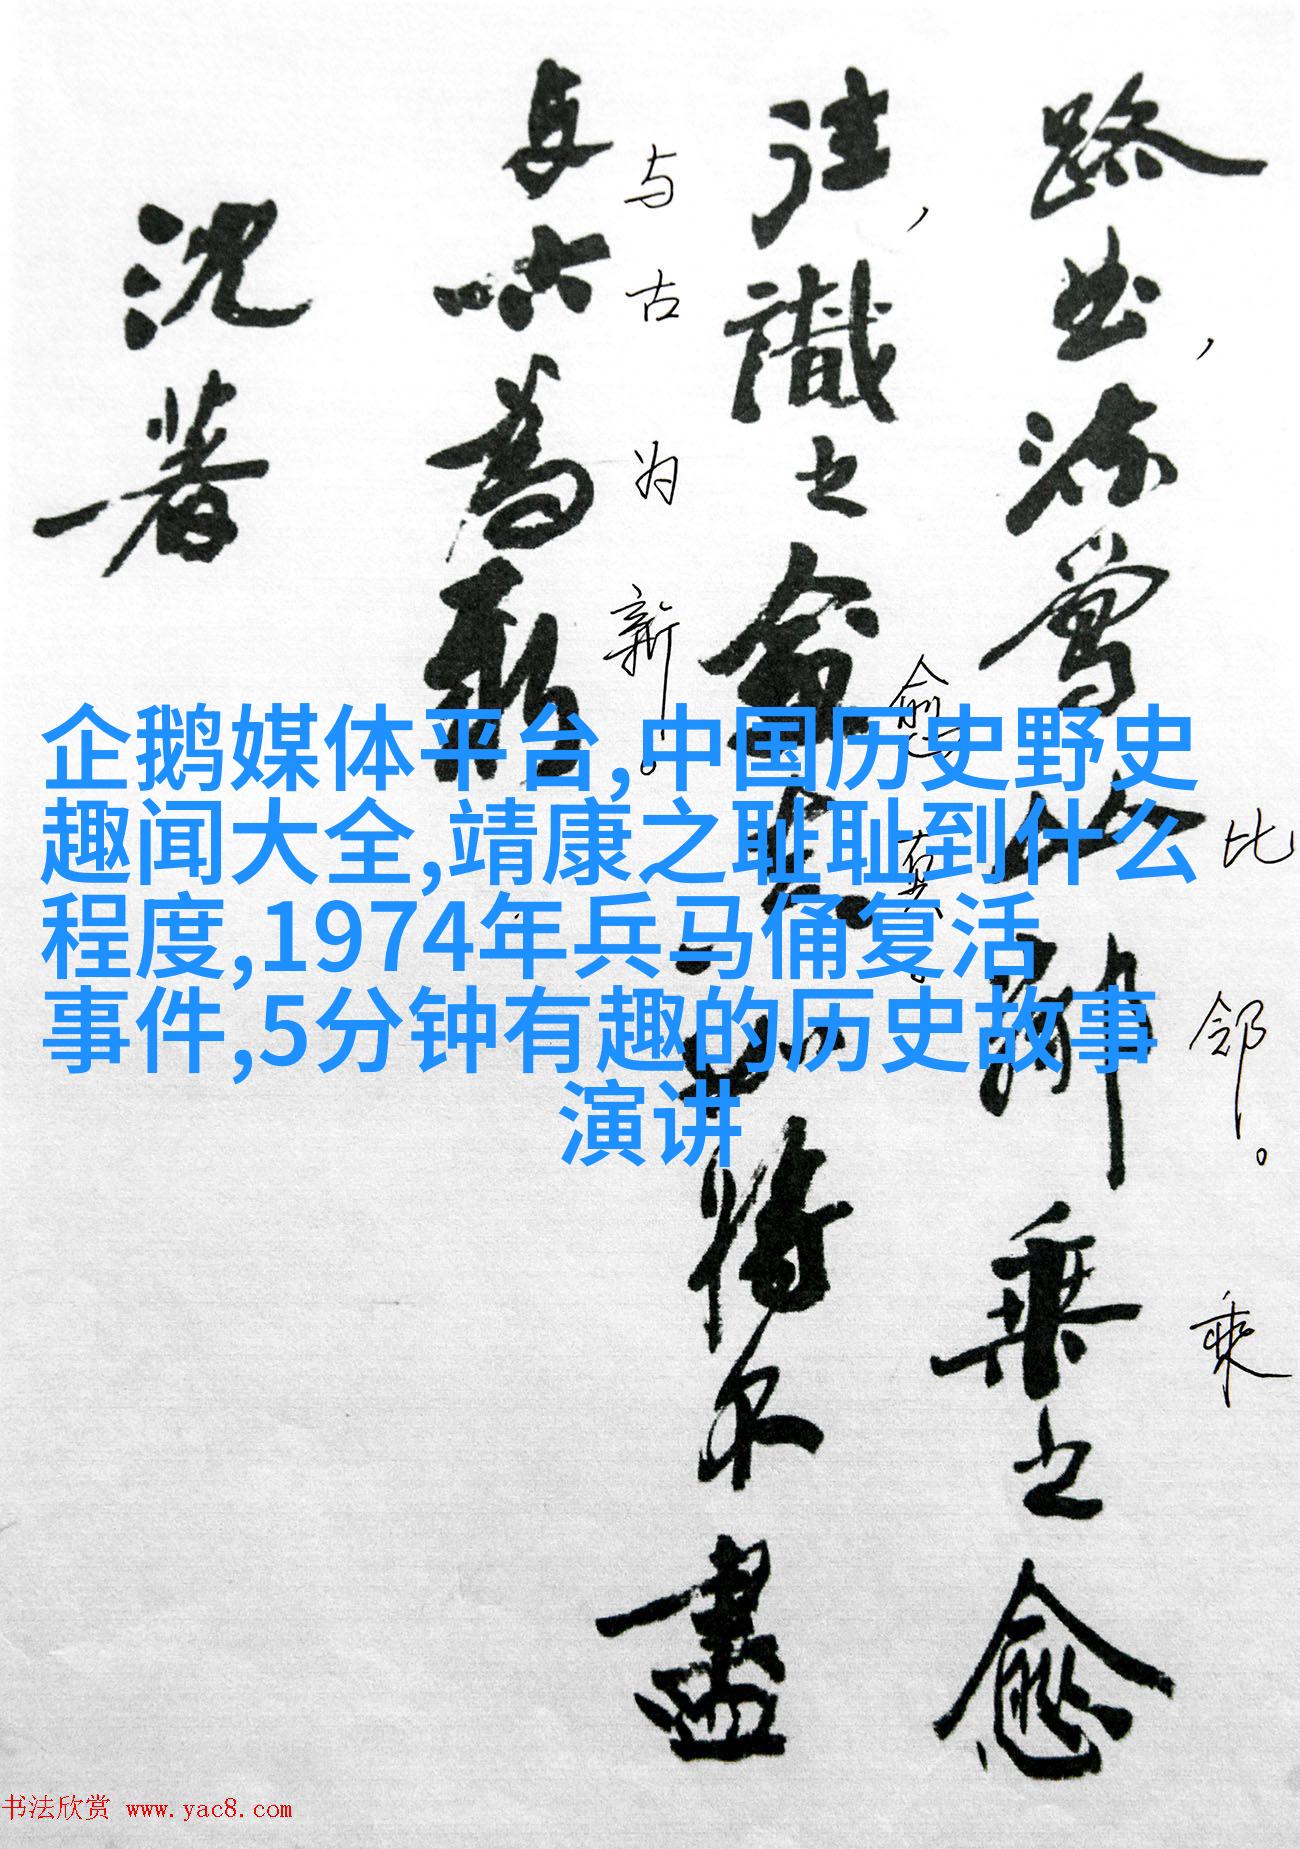 路曲流鶯比鄰乘之愈
比邻。乘
往識之愈真如將不盡
愈真。
与古為新
与古为新。
沈著
企鹅媒体平台,中国历史野史
趣闻大全,靖康之耻耻到什么
程度,1974年兵马俑复活
事件,5分钟有趣的历史故事
演讲
书法欣赏 www.yac8.com